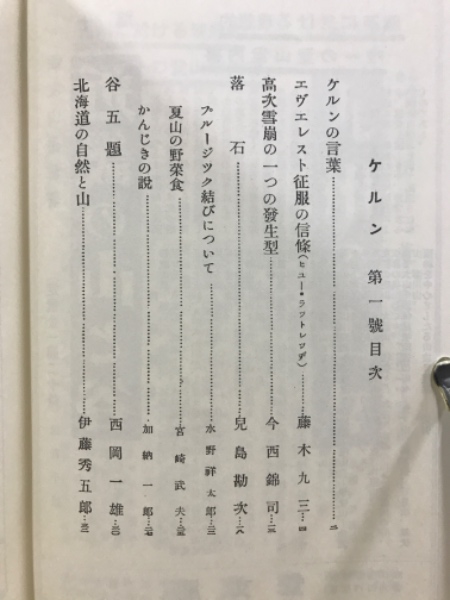 ケルン 第一號目次
ケルンの言葉……二
エヴエレスト征服の信條(ヒユー・ラツトレツヂ)……藤木九三…四
高次雪崩の一つの發生型……今西錦司…一三
落石……兒島勘次…一八
プルージツク結びについて……水野祥太郎…三
夏山の野菜食……宮崎武夫…
かんじきの說……加納一郎…
谷五題……西岡一雄…三〇
北海道の自然と山……伊藤秀五郎…